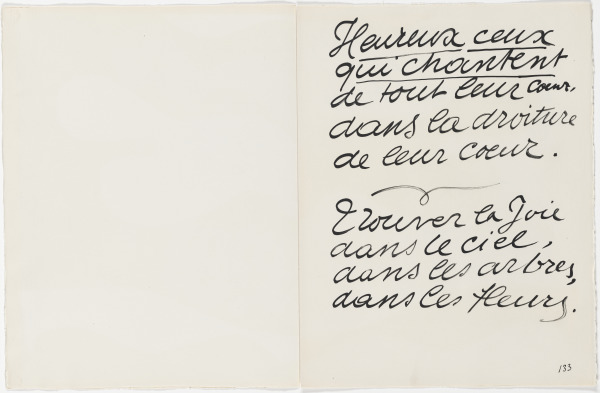 Heureux ceux
qui chantent
de tout leur coeur,
dans la droiture
de leur coeur.
Trouver la Joie
dans le ciel,
dans les arbres,
dans les fleurs.
133